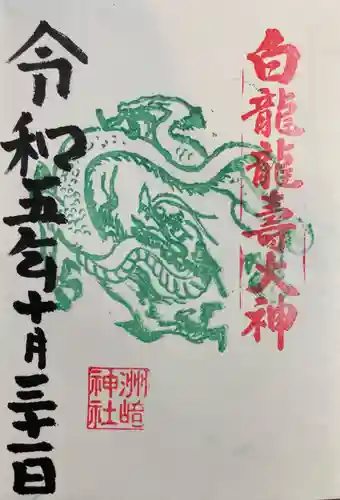 白龍龍寿大神
洲崎
神社
令和五年十月三十一日